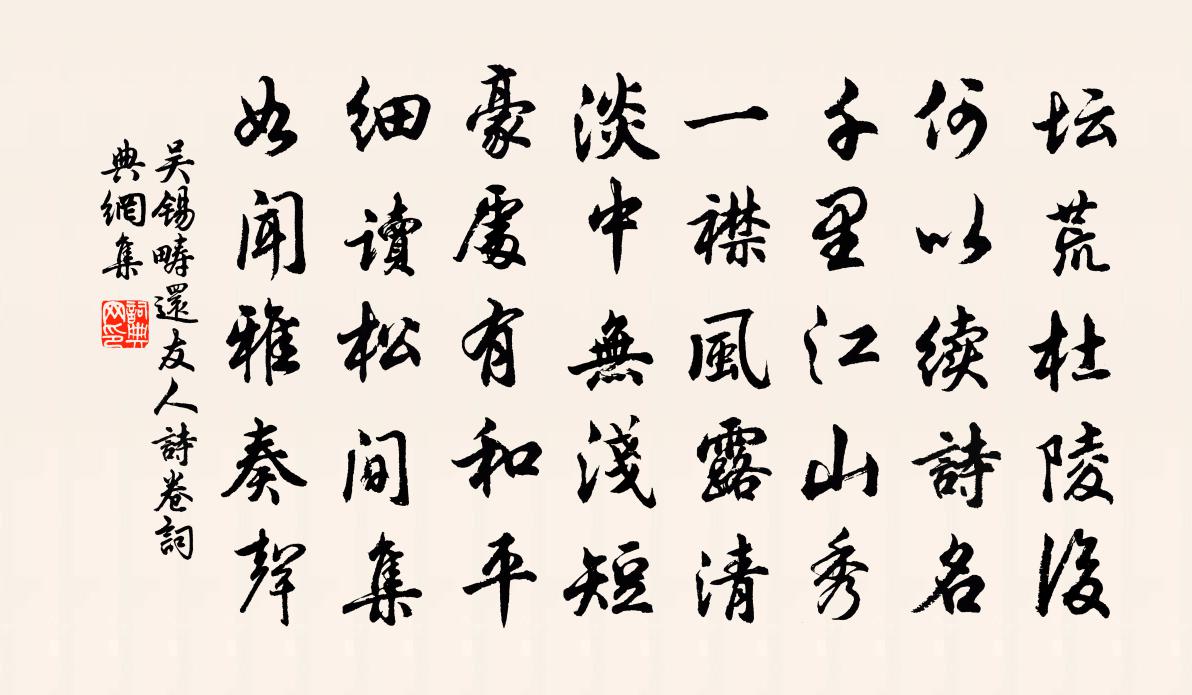 坛荒杜陵後
何以续詩名
千里江山秀
一襟風露清
淡中無淺短
豪處有和平
细讀松間集
如闻雅奏聲
吴锡疇還友人詩卷詞
典網集
詞典
网印